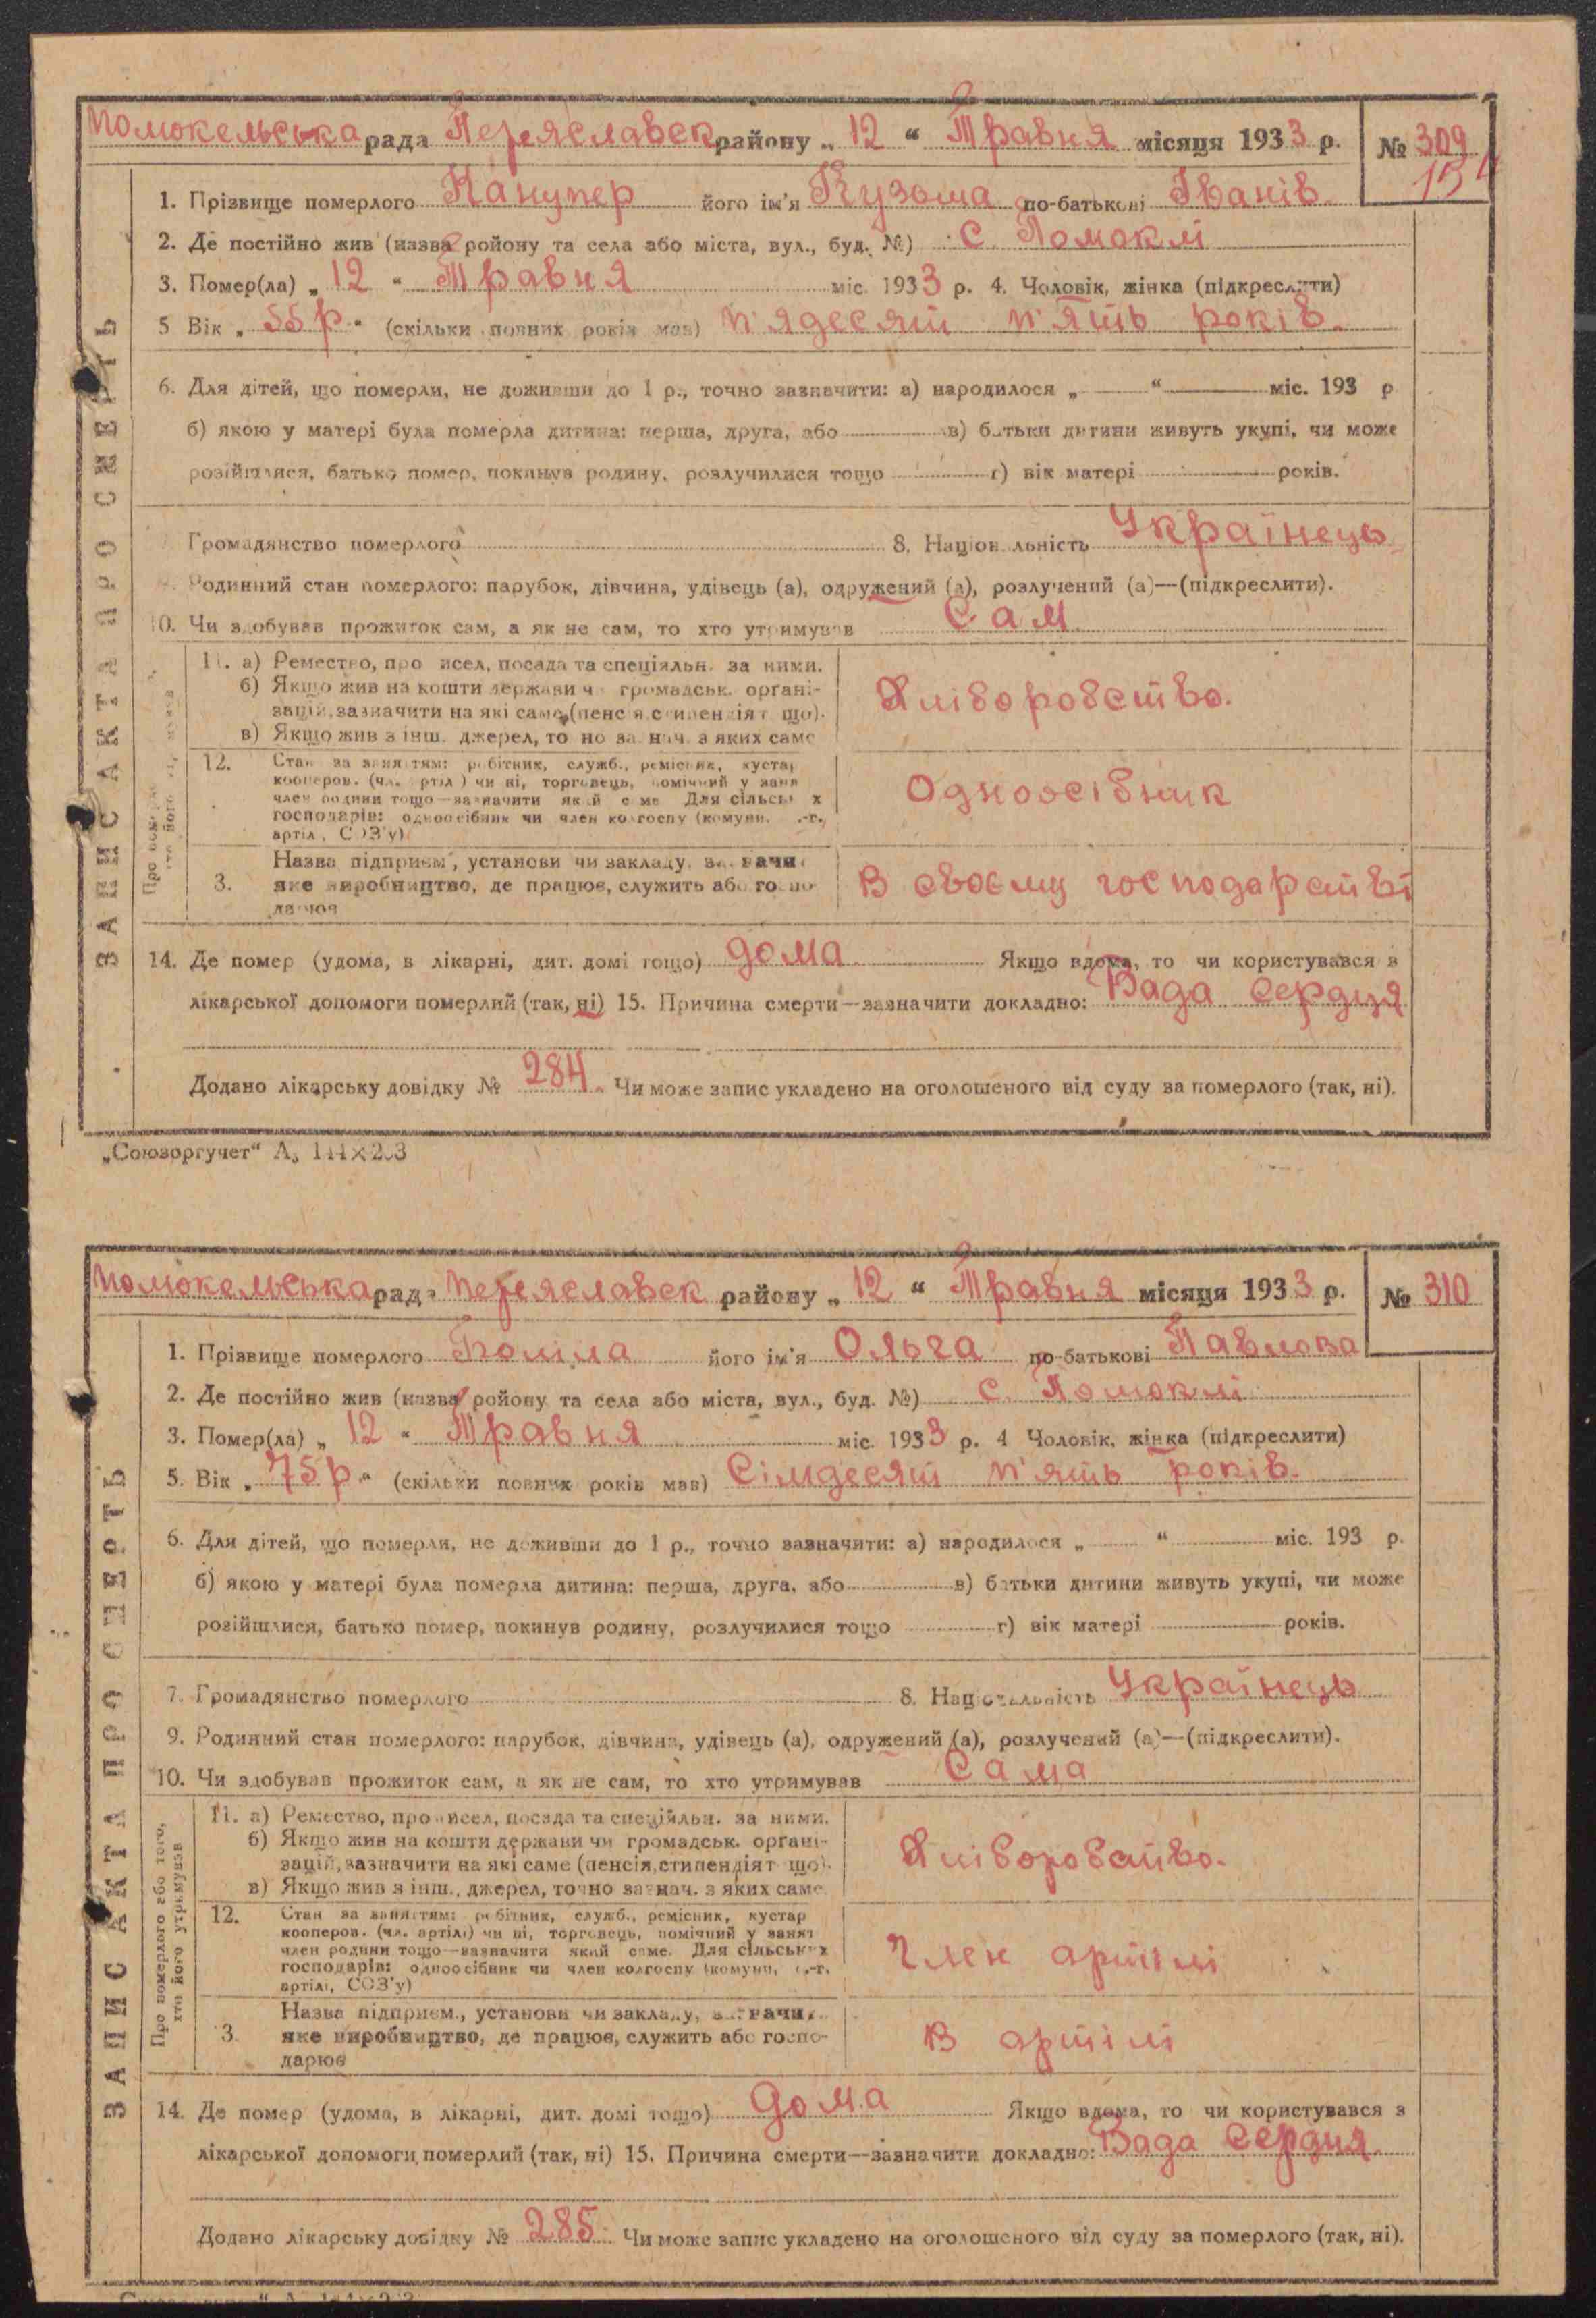 Помокельська рада Переяславск району „ 12 “ Травня місяця 1933 р. № 309
154
1. Прізвище померлого Канупер його ім'я Кузьма по-батькові Іванів.
2. Де постійно жив (назва ройону та села або міста, вул., буд. №) с. Помоклі
3. Помер(ла) „ 12 “ Травня міс. 1933 р. 4. Чоловік, жінка (підкреслити)
5 Вік „ 55 р. “ (скільки повних років мав) п'ядесят п'ять років.
6. Для дітей, що померли, не доживши до 1 р., точно зазначити: а) народилося „ “ міс. 193 р
б) якою у матері була померла дитина: перша, друга, або в) батьки дитини живуть укупі, чи може
розійшлися, батько помер, покинув родину, розлучилися тощо г) вік матері років.
Громадянство померлого 8. Національність Українець
Родинний стан померлого: парубок, дівчина, удівець (а), одружений (а), розлучений (а)—(підкреслити).
10. Чи здобував прожиток сам, а як не сам, то хто утримував Сам
ЗАПИС АКТА ПРО СМЕРТЬ
11. а) Ремество, промисел, посада та спеціяльн. за ними.
б) Якщо жив на кошти держави чи громадськ. органі-
зацій, зазначити на які саме (пенсія, стипендіят що).
в) Якщо жив з інш. джерел, точно зазнач. з яких саме
Хліборобство.
12. Стан за заняттям: робітник, служб., ремісник, кустар
кооперов. (чл. артіл) чи ні, торговець, помічний у занят
член родини тощо—зазначити який саме Для сільських
господарів: одноосібник чи член колгоспу (комуни, с.-г.
артіл, СОЗ'у)
Одноосібник
3. Назва підприєм, установи чи закладу, зазначи
яке виробництво, де працює, служить або госпо-
дарює
В своєму господарстві
14. Де помер (удома, в лікарні, дит. домі тощо) дома Якщо вдома, то чи користувався з
лікарської допомоги померлий (так, ні) 15. Причина смерти—зазначити докладно: Вада сердця
Додано лікарську довідку № 284. Чи може запис укладено на оголошеного від суду за померлого (так, ні).
„Союзоргучет“ А₅ 144×203
Помокельська рада Переяславск району „ 12 “ Травня місяця 1933 р. № 310
1. Прізвище померлого його ім'я Ольга по-батькові Павлова
2. Де постійно жив (назва ройону та села або міста, вул., буд. №) с. Помоклі
3. Помер(ла) „ 12 “ Травня міс. 1933 р. 4 Чоловік, жінка (підкреслити)
5. Вік „ 75 р. “ (скільки повних років мав) Сімдесят п'ять років.
6. Для дітей, що померли, не доживши до 1 р., точно зазначити: а) народилося „ “ міс. 193 р.
б) якою у матері була померла дитина: перша, друга, або в) батьки дитини живуть укупі, чи може
розійшлися, батько помер, покинув родину, розлучилися тощо г) вік матері років.
7. Громадянство померлого 8. Національність Українець
9. Родинний стан померлого: парубок, дівчина, удівець (а), одружений (а), розлучений (а)—(підкреслити).
10. Чи здобував прожиток сам, а як не сам, то хто утримував Сама
ЗАПИС АКТА ПРО СМЕРТЬ
Про померлого або того,
хто його утримував
11. а) Ремество, промисел, посада та спеціяльн. за ними.
б) Якщо жив на кошти держави чи громадськ. органі-
зацій, зазначити на які саме (пенсія, стипендіят що).
в) Якщо жив з інш., джерел, точно зазнач. з яких саме
Хліборобство.
12. Стан за заняттям: робітник, служб., ремісник, кустар
кооперов. (чл. артілі) чи ні, торговець, помічний у занят
член родини тощо—зазначити який саме. Для сільських
господарів: одноосібник чи член колгоспу (комуни, с.-г.
артілі, СОЗ'у)
Член артілі
3. Назва підприєм., установи чи закладу, зазначи
яке виробництво, де працює, служить або госпо-
дарює
В артілі
14. Де помер (удома, в лікарні, дит. домі тощо) дома Якщо вдома, то чи користувався з
лікарської допомоги померлий (так, ні) 15. Причина смерти—зазначити докладно: Вада сердця.
Додано лікарську довідку № 285 Чи може запис укладено на оголошеного від суду за померлого (так, ні).